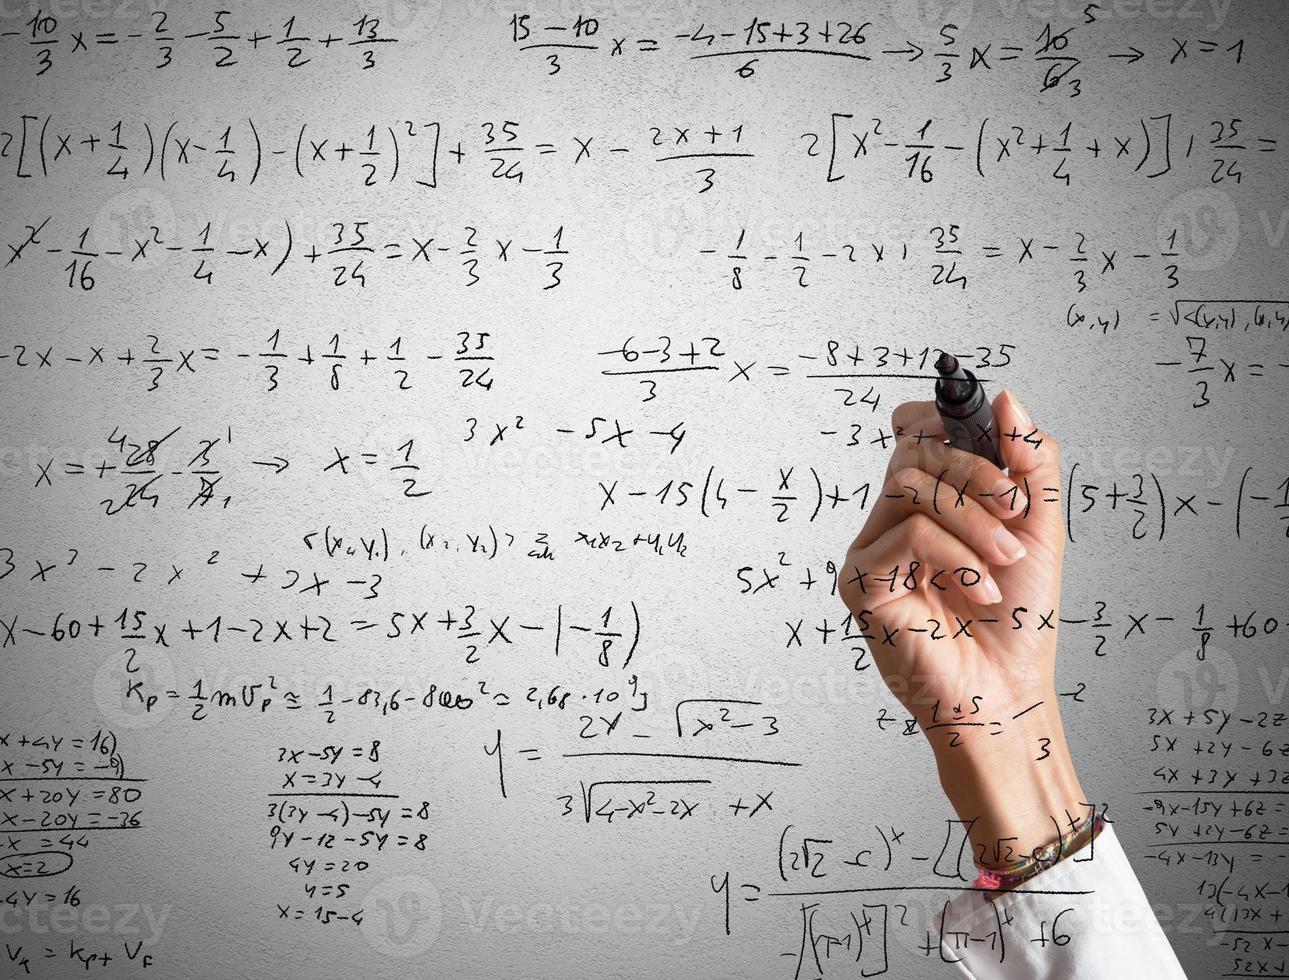 -10/3 x = -2/3 - 5/2 + 1/2 + 13/3
15-10/3 x = -4-15+3+26/6 → 5/3 x = 10/6 5 3 → x = 1
2[(x+1/4)(x-1/4)-(x+1/2)²]+35/24 = x - 2x+1/3
2[x²-1/16-(x²+1/4+x)] + 35/24 =
x²-1/16-x²-1/4-x)+35/24 = x-2/3 x-1/3
-1/8 - 1/2 - 2x + 35/24 = x - 2/3 x - 1/3
(x,y) = √<(x,y),(x,y)
-2x-x+2/3 x = -1/3+1/8+1/2-35/24
-6-3+2/3 x = -8+3+12-35/24
-7/3 x = -
x = +28/24 4 2 - 3/ 1 1 → x = 1/2
3x² -5x -4
-3x²+5x+4
x-15(4-x/2)+1-2(x-1) = (5+3/2)x-(-1
<(x₁,y₁),(x₂,y₂)> x₁x₂+y₁y₂
3x³ - 2x² + 2x - 3
5x²+9x-18<0
x-60+15/2 x+1-2x+2 = 5x+3/2 x-(-1/8)
x+15/2 x-2x-5x-3/2 x-1/8+60-
Kp = 1/2 mVp² ≅ 1/2 -83,6-800² ≃ 2,68·10⁹J
1±5/2 =
-2
3
y = 2x - √x²-3 / 3√4-x²-2x +x
x+4y = 16)
x-5y = -9)
x+20y = 80
x-20y = -36
x = 44
x=2
4y = 16
3x-5y = 8
x = 3y-4
3(3y-4)-5y = 8
9y-12-5y = 8
4y = 20
y = 5
x = 15-4
3x+5y-2z
5x+2y-6z
4x+3y+3z
-9x-15y+6z =
5y+2y-6z =
-4x-13y = -
13(-4x-1
4(13x+
-52x-
52x+
y = (2√2-c)ˣ-[(2√2-c)ˣ]² / -[(π-1)ˣ]²+(π-1)ˣ+6
= Kp+
Vecteezy
Vecteezy
Vecteezy
Vecteezy
Vecteezy
Vecteezy